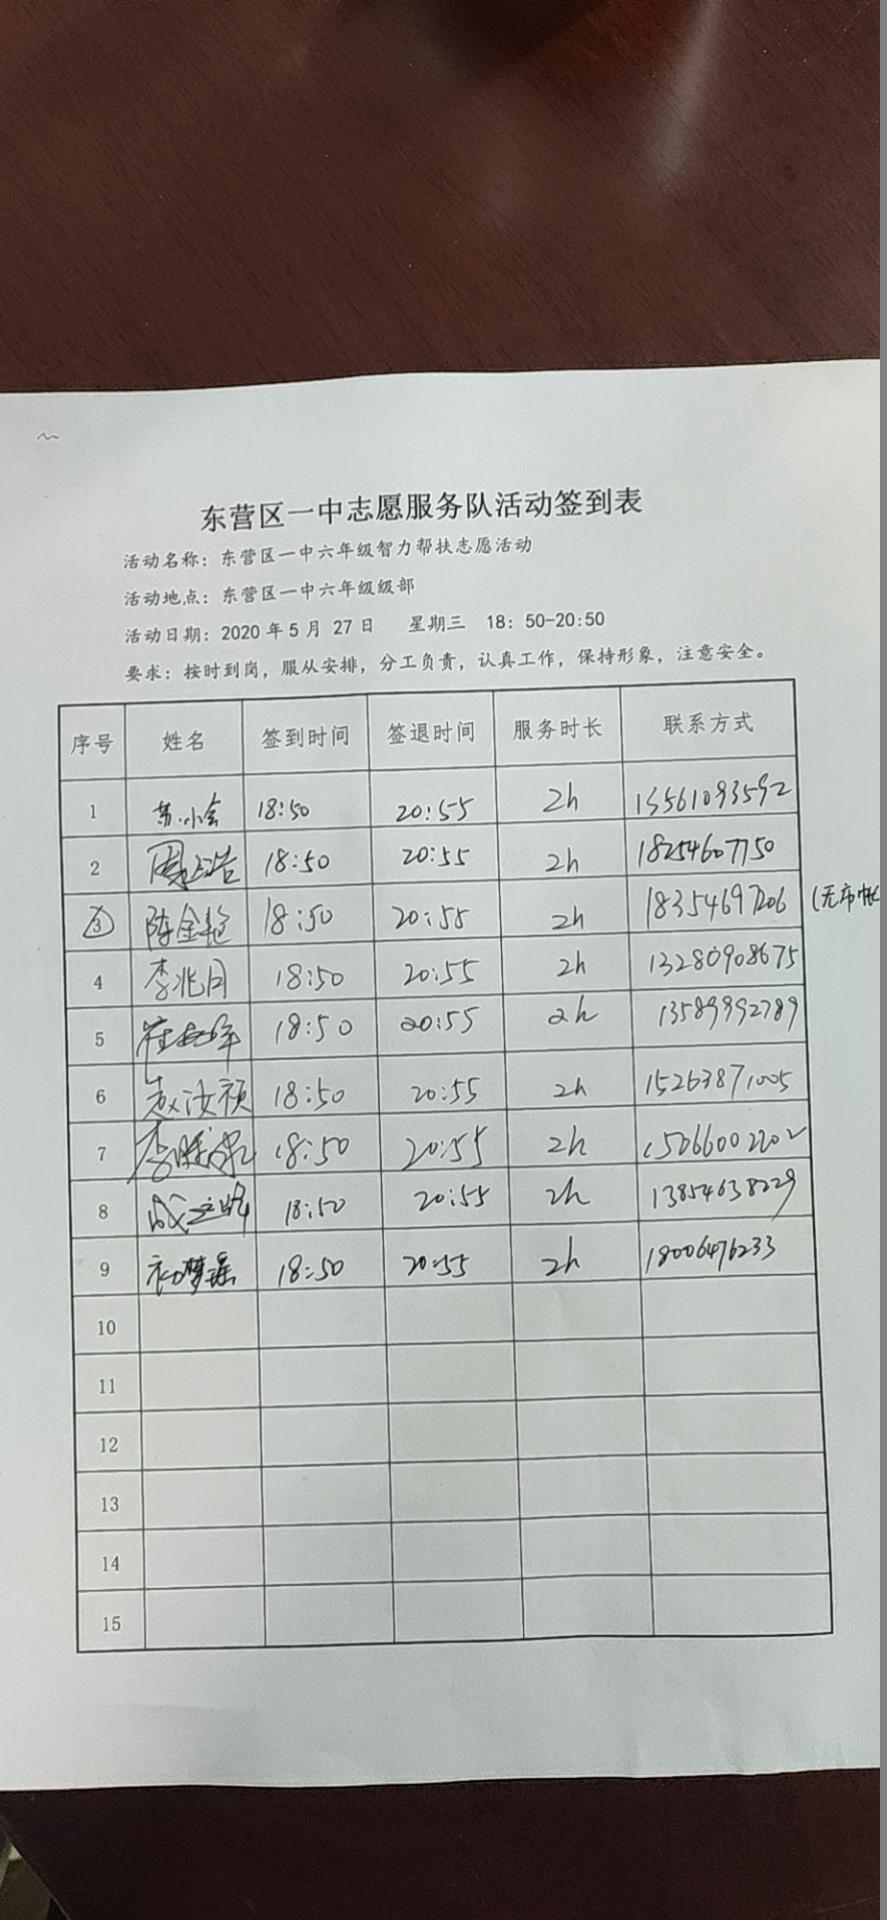 东营区一中志愿服务队活动签到表
活动名称：东营区一中六年级智力帮扶志愿活动
活动地点：东营区一中六年级级部
活动日期：2020年5月 27日 星期三 18：50-20:50
要求：按时到岗，服从安排，分工负责，认真工作，保持形象，注意安全。
序号 姓名 签到时间 签退时间 服务时长 联系方式
1 18:50 20:55 2h 13561093592
2 18:50 20:55 2h 18254607750
3 陈金艳 18:50 20:55 2h 18354697206
4 李兆月 18:50 20:55 2h 13280908675
5 18:50 20:55 2h 13589992789
6 赵汝祯 18:50 20:55 2h 15263871005
7 18:50 20:55 2h 15066002202
8 18:50 20:55 2h 13854638229
9 初梦瑶 18:50 20:55 2h 18006476233
10
11
12
13
14
15